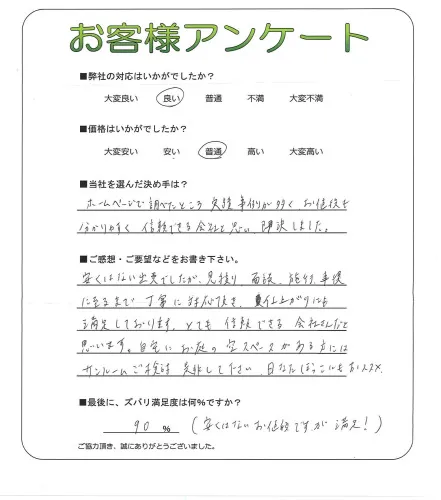 お客様アンケート
■弊社の対応はいかがでしたか?
大変良い 良い 普通 不満 大変不満
■価格はいかがでしたか?
大変安い 安い 普通 高い 大変高い
■当社を選んだ決め手は?
ホームページで調べたところ 実績事例が多く お値段も
分かりやすく 信頼できる会社と思い、即決しました。
■ご感想・ご要望などをお書き下さい。
安くはない出費でしたが、見積り、商談、施行、事後
に至るまで 丁寧に対応頂き、仕上がりにも
満足しております。とても 信頼できる 会社さんだと
思います。自宅に お庭の 空スペースがある方には
サンルームご検討 是非して下さい、日なたぼっこにもおススメ。
■最後に、ズバリ満足度は何%ですか?
90 % (安くはないお値段ですが 満足!)
ご協力頂き、誠にありがとうございました。